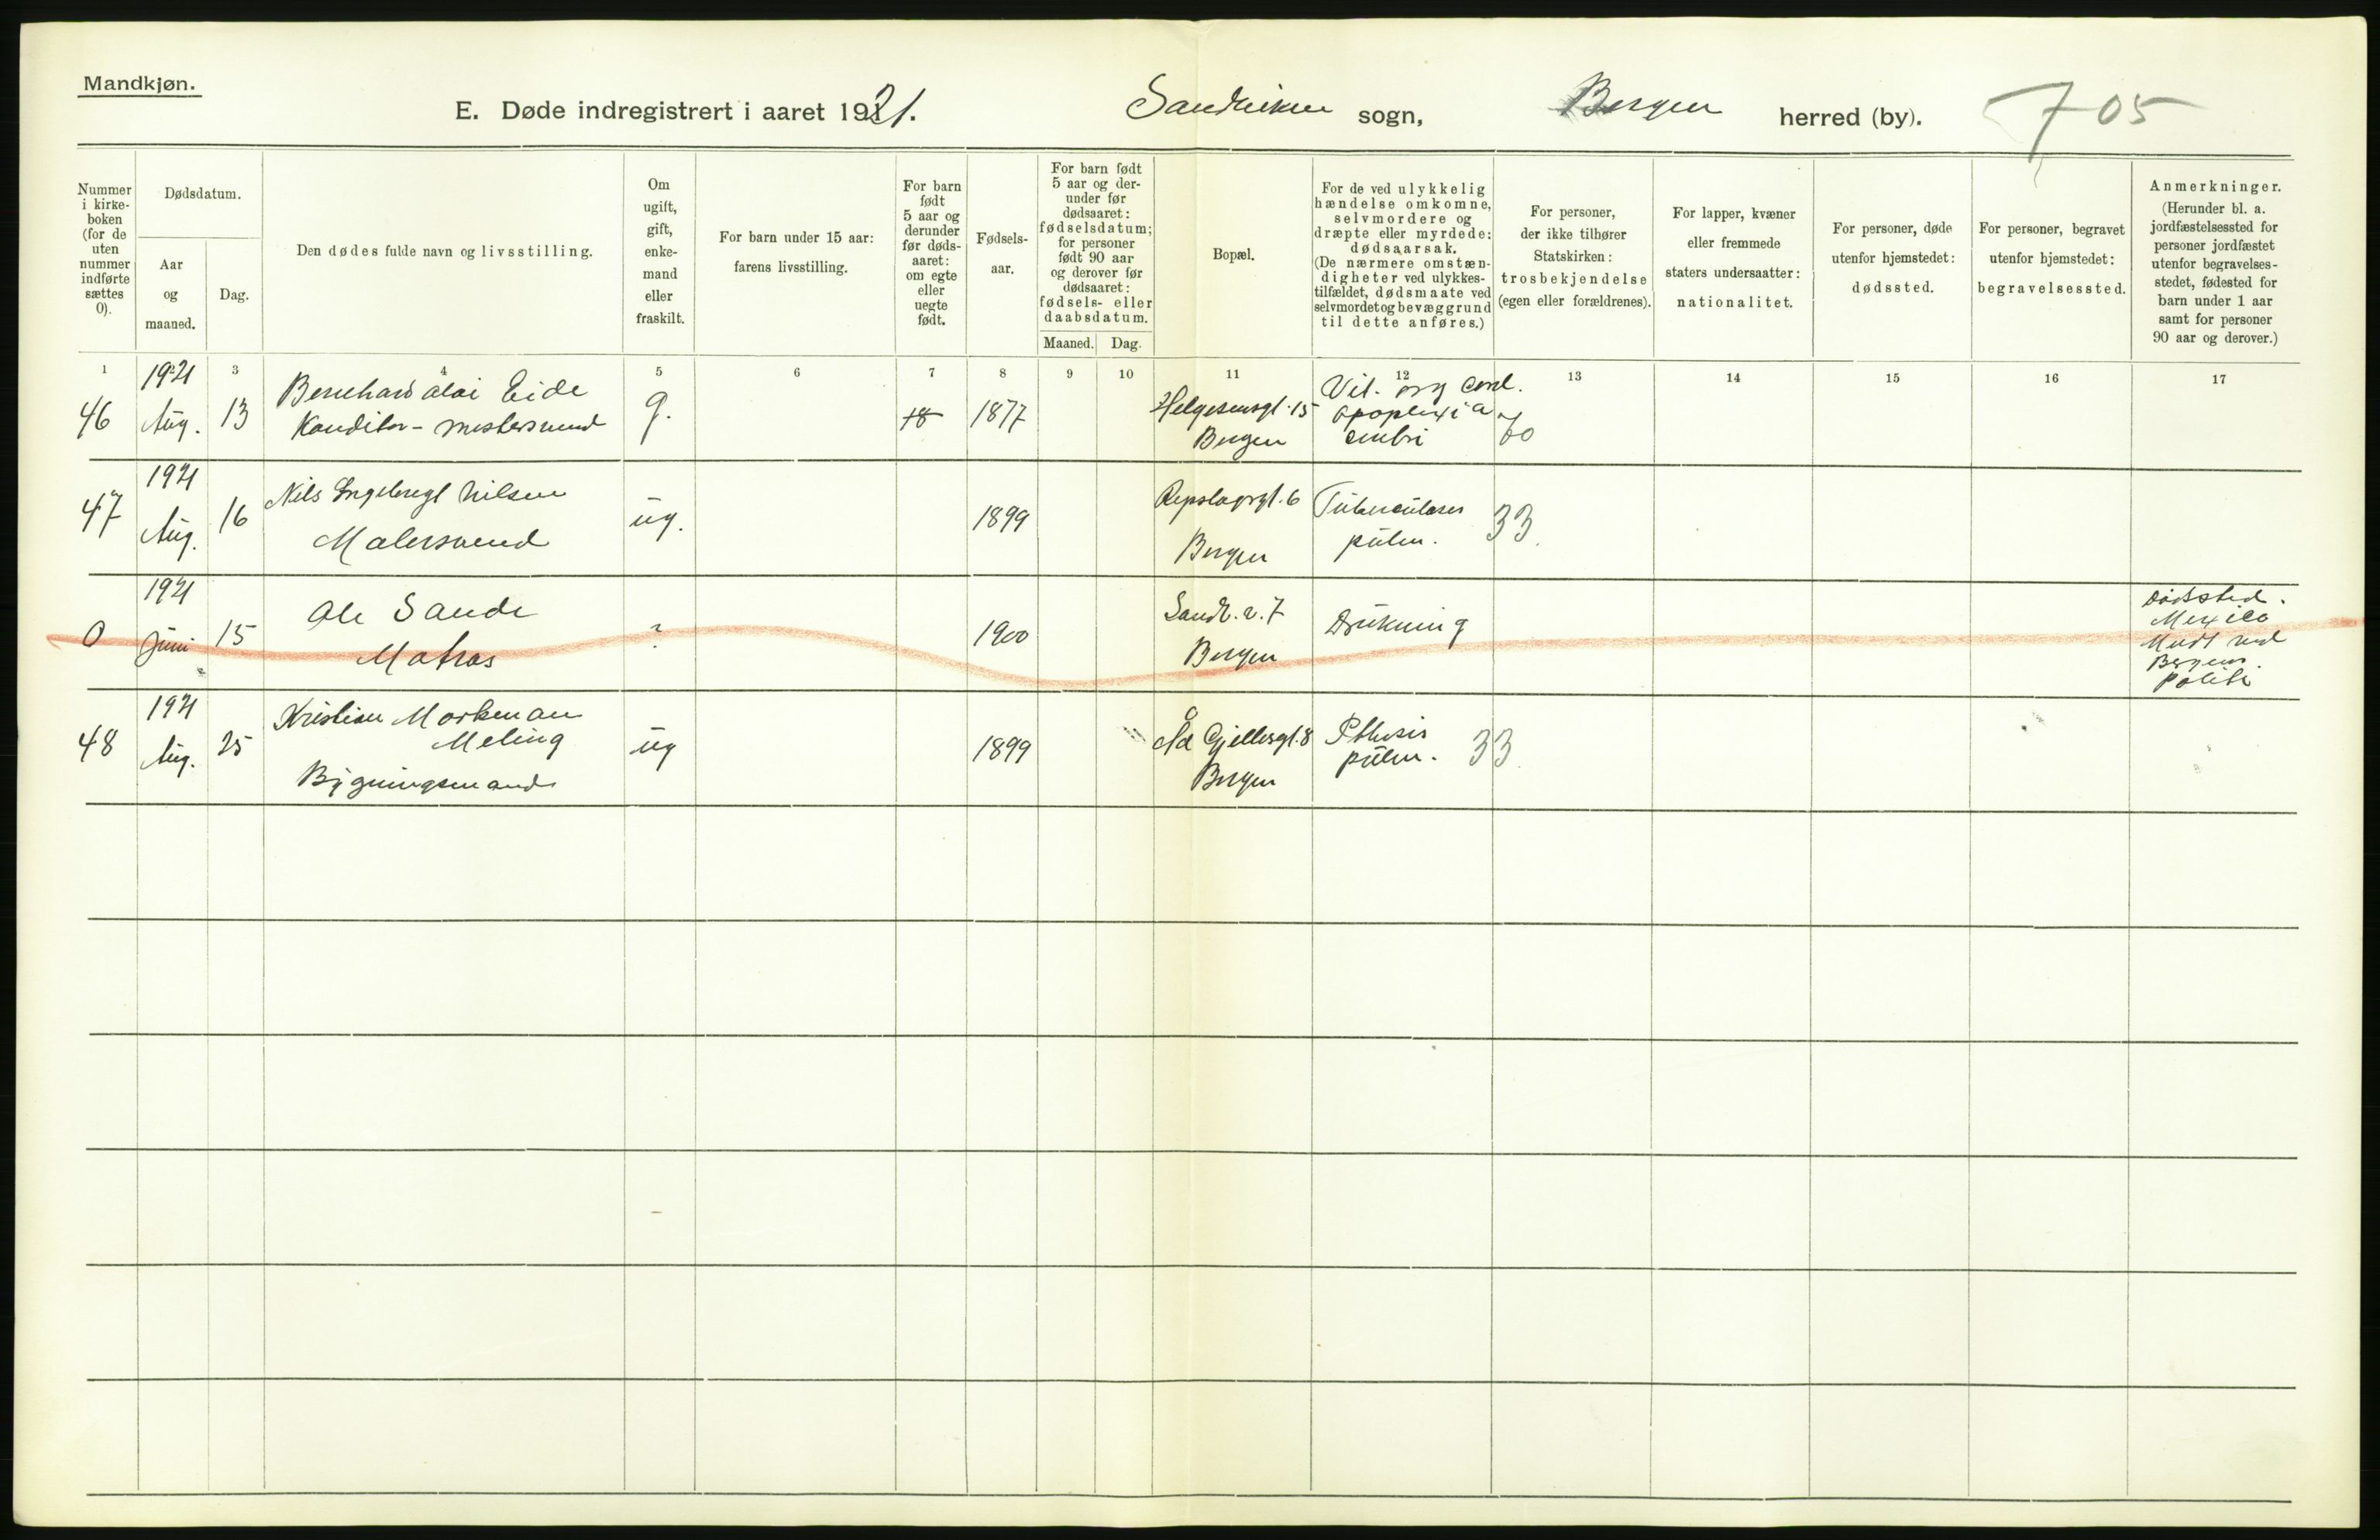 Mandkjøn.
E. Døde indregistrert i aaret 1921. Sandviken sogn, Bergen herred (by). 705
Nummer i kirke- boken (for de uten nummer indførte sættes 0).
Dødsdatum.
Aar og maaned.
Dag.
Den dødes fulde navn og livsstilling.
Om ugift, gift, enke- mand eller fraskilt.
For barn under 15 aar: farens livsstilling.
For barn født 5 aar og derunder før døds- aaret: om egte eller uegte født.
Fødsels- aar.
For barn født 5 aar og der- under før dødsaaret: fødselsdatum; for personer født 90 aar og derover før dødsaaret: fødsels- eller daabsdatum.
Maaned. Dag.
Bopæl.
For de ved ulykkelig hændelse omkomne, selvmordere og dræpte eller myrdede: dødsaarsak. (De nærmere omstæn- digheter ved ulykkes- tilfældet, dødsmaate ved selvmordet og bevæggrund til dette anføres.)
For personer, der ikke tilhører Statskirken: trosbekjendelse (egen eller forældrenes).
For lapper, kvæner eller fremmede staters undersaatter: nationalitet.
For personer, døde utenfor hjemstedet: dødssted.
For personer, begravet utenfor hjemstedet: begravelsessted.
Anmerkninger. (Herunder bl. a. jordfæstelsessted for personer jordfæstet utenfor begravelses- stedet, fødested for barn under 1 aar samt for personer 90 aar og derover.)
1 3 4 5 6 7 8 9 10 11 12 13 14 15 16 17
46 1921 Aug. 13 Bernhard Eide
Konditor-mestersvend g. 18 1877 Helgesensgt. 15
Bergen Vit. org cord.
apoplexia
70
47 1921 Aug. 16 Nils Engebregt Nilsen
Malersvend ug. 1899 Repslagrgt. 6
Bergen Tuberculoses
pulm. 33.
0 1921 Juni 15 Ole Sande
Matros ? 1900 Sandv. v. 7
Bergen Drukning Dødssted.
Mexico
Medt ved
Bergens
politi
48 1921 Aug. 25 Kristian Markman
Meling
Bygningsmand ug 1899 Ad Gjellesgt. 8
Bergen Pthisis
pulm. 33.